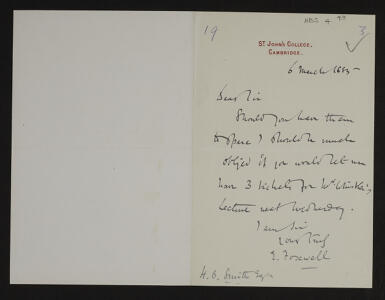 19
HBS 4
3
ST JOHN'S COLLEGE,
CAMBRIDGE.
6 March 1885
Dear Sir
Should you have them
to spare I should be much
obliged if you would let me
have 3 tickets for Mr Whistler's
Lecture next Wednesday.
I am Sir
Yours truly
E. Foxwell
H. B. Smith Esqre